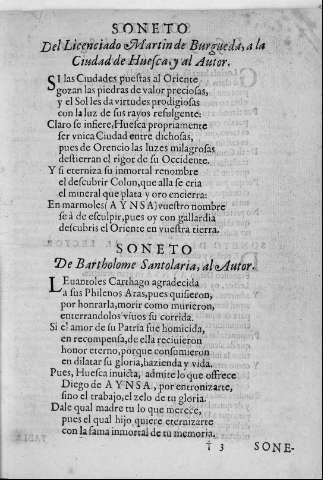 SONETO
Del Licenciado Martin de Burgueda, a la
Ciudad de Huesca, y al Autor.
SI las Ciudades puestas al Oriente
gozan las piedras de valor preciosas,
y el Sol les da virtudes prodigiosas
con la luz de sus rayos refulgente:
Claro se infiere, Huesca propriamente
ser vnica Ciudad entre dichosas,
pues de Orencio las luzes milagrosas
destierran el rigor de su Occidente.
Y si eterniza su inmortal renombre
el descubrir Colon, que alla se cria
el mineral que plata y oro encierra:
En marmoles (AYNSA) vuestro nombre
se à de esculpir, pues oy con gallardia
descubris el Oriente en vuestra tierra.
SONETO
De Bartholome Santolaria, al Autor.
LEuantoles Carthago agradecida
a sus Philenos Aras, pues quisieron,
por honrarla, morir como murieron,
enterrandolos viuos su corrida.
Si el amor de su Patria fue homicida,
en recompensa, de ella reciuieron
honor eterno, porque consumieron
en dilatar su gloria, hazienda y vida.
Pues, Huesca inuicta, admite lo que offrece
Diego de AYNSA, por entronizarte,
sino el trabajo, el zelo de tu gloria.
Dale qual madre tu lo que merece,
pues el qual hijo quiere eternizarte
con la fama inmortal de tu memoria.
† 3 SONE-